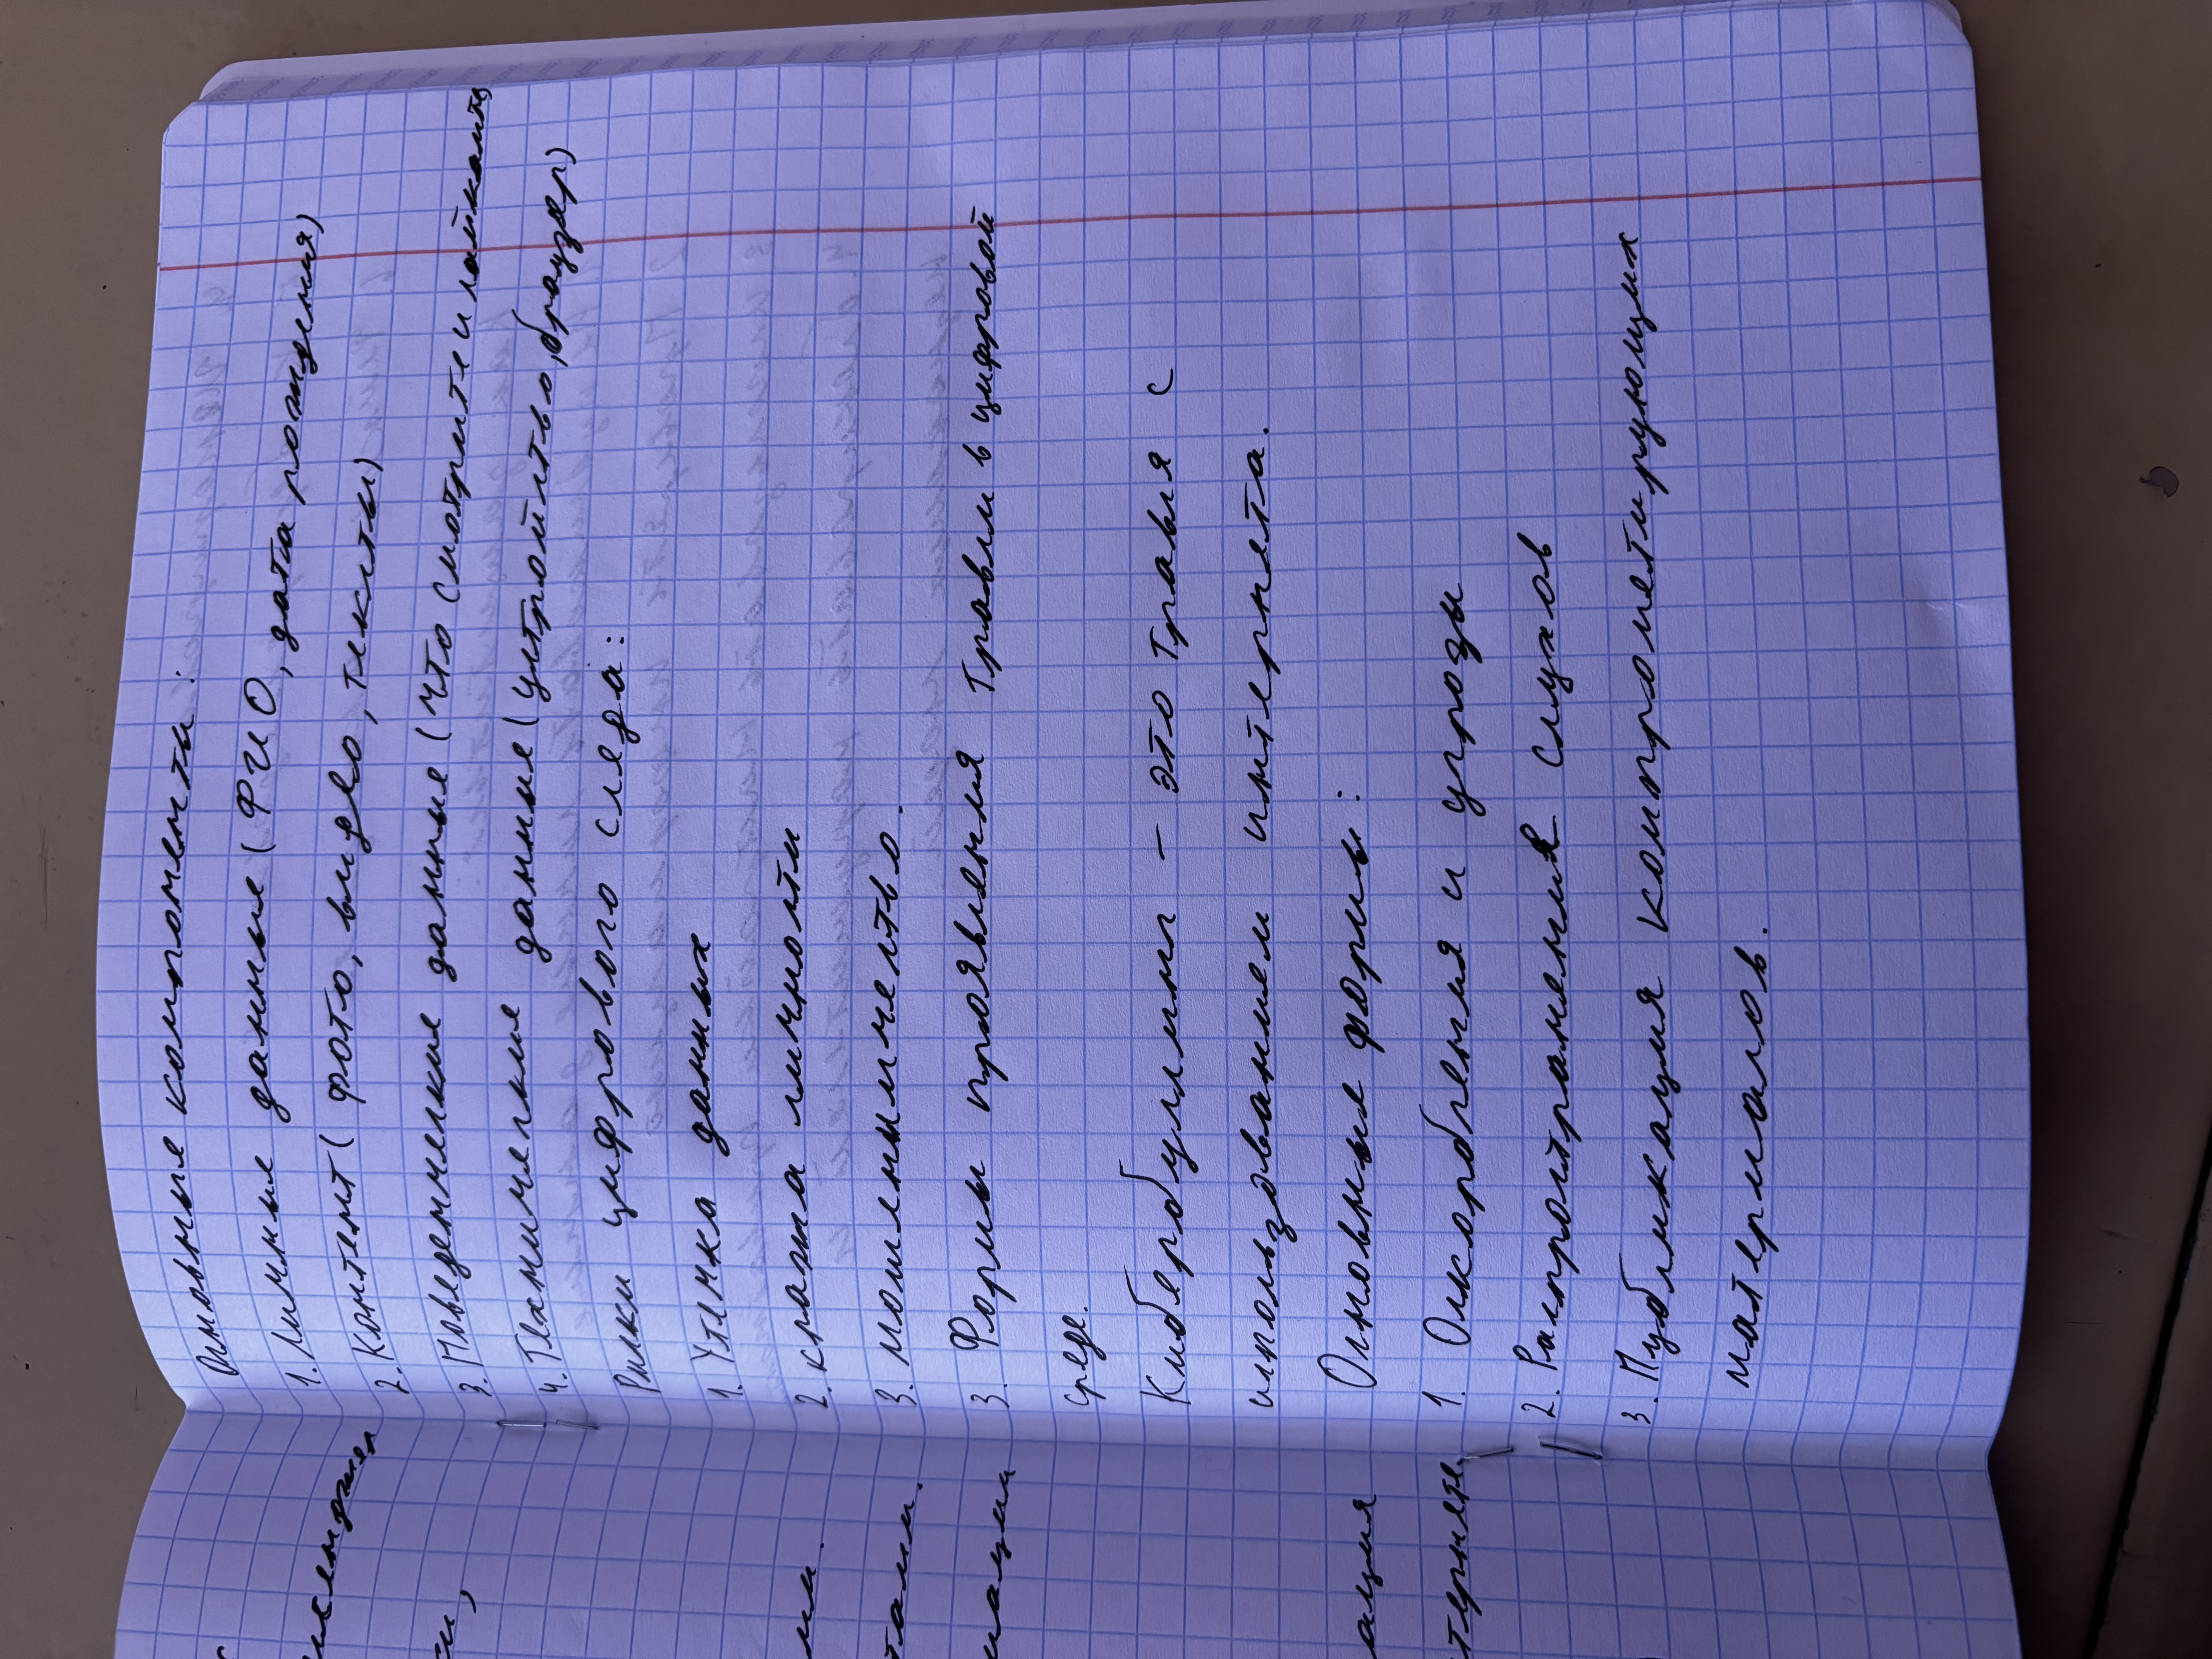 Основные компоненты:
1. Личные данные (ФИО, дата рождения)
2. Контент (фото, видео, тексты)
3. Поведенческие данные (что смотрите и лайкаите)
4. Технические данные (устройство, браузер)
Риски цифрового следа:
1. Утечка данных
2. кража личности
3. мошенничество.
3. Формы проявления травли в цифровой
среде.
Кибербуллинг – это травля с
использованием интернета.
Основные формы:
1. Оскорбления и угрозы
2. Распространения слухов
3. Публикация компрометирующих
материалов.